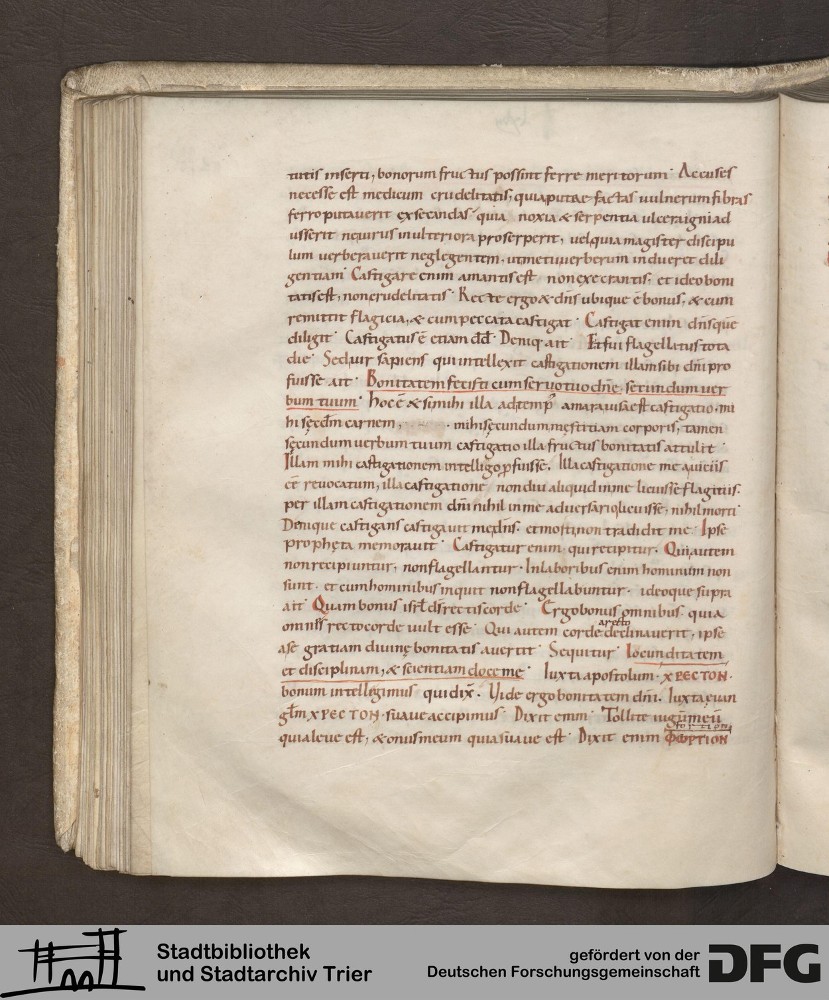 tutis inserti, bonorum fructus possint ferre meritorum. Accuses
necesse est medicum crudelitatis, quia putae factas uulnerum fibras
ferro putauerit exsecandas, quia noxia & serpentia ulcera igni ad
usserit ne uirus in ulteriora proserperet, uel quia magister discipu
lum uerberauerit neglegentem, ut metu uerberum indueret dili
gentiam. Castigare enim amantis est, non execrantis, et ideo boni
tatis est, non crudelitatis. Recte ergo & dñs ubique ē bonus, & cum
remittit flagicia, & cum peccata castigat. Castigat enim dñs quē
diligit. Castigatus ē etiam dđd. Deniq; ait. Et fui flagellatus tota
die. Sed uir sapiens qui intellexit castigationem illam sibi dñi pro
fuisse ait. Bonitatem fecisti cum seruo tuo dñe, secundum uer
bum tuum. Hoc ē & si mihi illa ad temp' amara uisa est castigatio, mi
hi secđm carnem, mihi secundum mestitiam corporis, tamen
secundum uerbum tuum castigatio illa fructus bonitatis attulit.
Illam mihi castigationem intellego pfuisse. Illa castigatione me a uiciis
eē reuocatum, illa castigatione non diu aliquid in me licuisse flagitiis.
per illam castigationem dñi nihil in me aduersario licuisse, nihil morti.
Denique castigans castigauit me dñs, et morti non tradidit me. Ipse
propheta memorauit. Castigatur enim, qui recipitur. Qui autem
non recipiuntur, non flagellantur. In laboribus enim hominum non
sunt, et cum hominibus inquit non flagellabuntur, ideoque supra
ait. Quam bonus isrł ds rectis corde. Ergo bonus omnibus, quia
omnis recto corde uult esse. Qui autem corde a recto declinauerit, ipse
a se gratiam diuine bonitatis auertit. Sequitur. Iocunditatem
et disciplinam, & scientiam doce me. Iuxta apostolum, XPECTON.
bonum intellegimus qui dix̄. Uide ergo bonitatem dñi. Iuxta euan
głm XPECTON, suaue accipimus. Dixit enim. Tollite iugum meū
quia leue est, & onus meum quia suaue est. Dixit enim ΦΟΡΤΙΟΝ
Stadtbibliothek
und Stadtarchiv Trier
gefördert von der
Deutschen Forschungsgemeinschaft
DFG